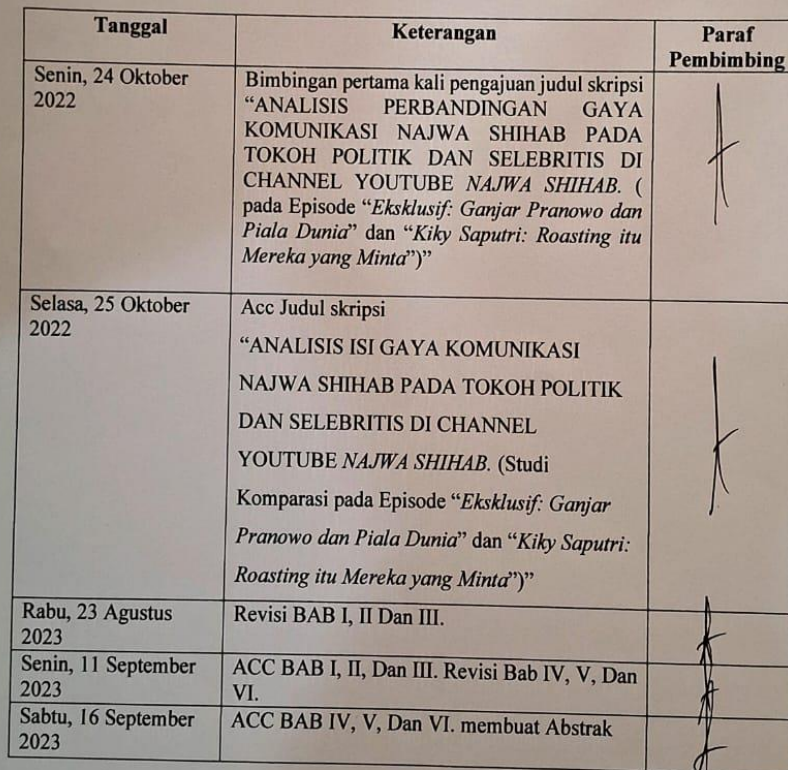 Tanggal
Keterangan
Paraf
Pembimbing
Senin, 24 Oktober
2022
Bimbingan pertama kali pengajuan judul skripsi
“ANALISIS PERBANDINGAN GAYA
KOMUNIKASI NAJWA SHIHAB PADA
TOKOH POLITIK DAN SELEBRITIS DI
CHANNEL YOUTUBE NAJWA SHIHAB. (
pada Episode “Eksklusif: Ganjar Pranowo dan
Piala Dunia” dan “Kiky Saputri: Roasting itu
Mereka yang Minta”)”
Selasa, 25 Oktober
2022
Acc Judul skripsi
“ANALISIS ISI GAYA KOMUNIKASI
NAJWA SHIHAB PADA TOKOH POLITIK
DAN SELEBRITIS DI CHANNEL
YOUTUBE NAJWA SHIHAB. (Studi
Komparasi pada Episode “Eksklusif: Ganjar
Pranowo dan Piala Dunia” dan “Kiky Saputri:
Roasting itu Mereka yang Minta”)”
Rabu, 23 Agustus
2023
Revisi BAB I, II Dan III.
Senin, 11 September
2023
ACC BAB I, II, Dan III. Revisi Bab IV, V, Dan
VI.
Sabtu, 16 September
2023
ACC BAB IV, V, Dan VI. membuat Abstrak